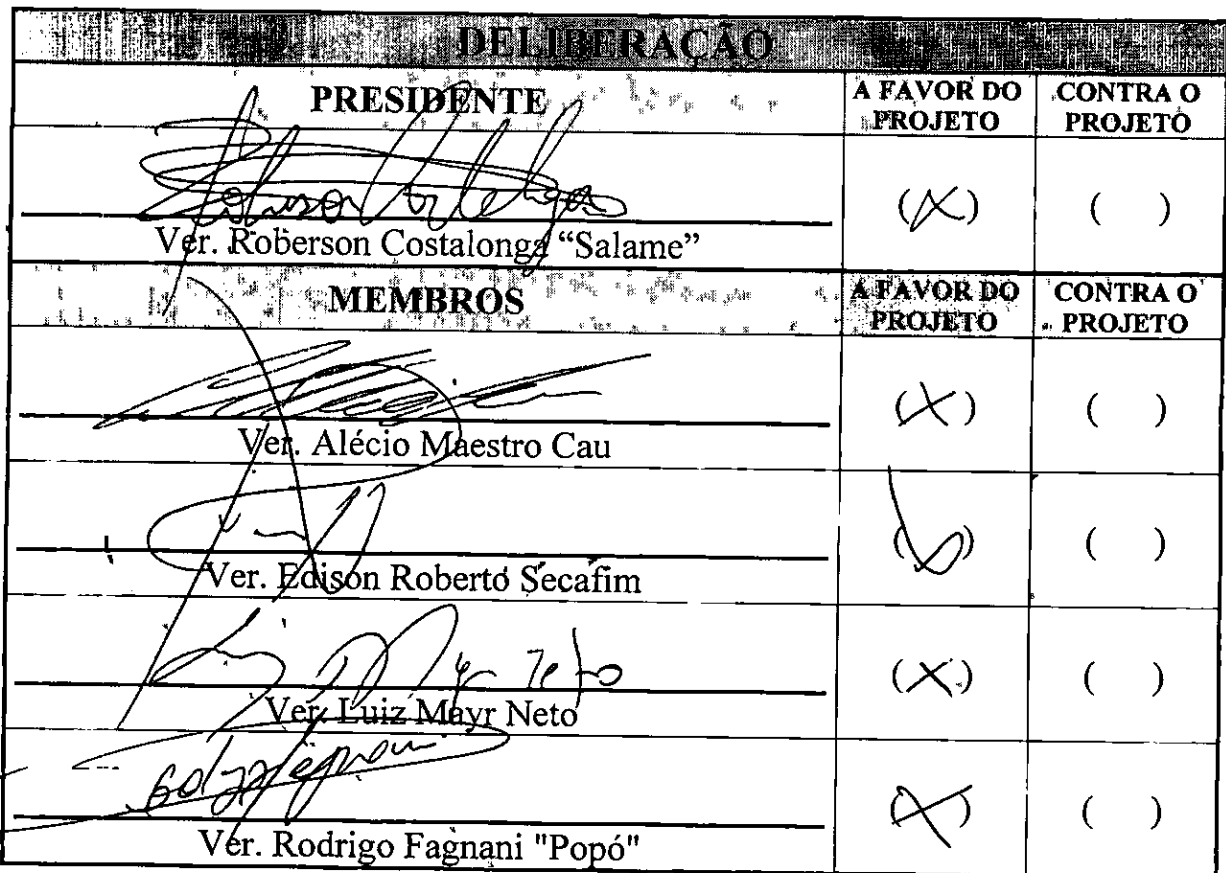 DELIBERAÇÃO
PRESIDENTE
A FAVOR DO PROJETO
CONTRA O PROJETO
(X)
( )
Ver. Roberson Costalonga “Salame”
MEMBROS
A FAVOR DO PROJETO
CONTRA O PROJETO
(X)
( )
Ver. Alécio Maestro Cau
( )
Ver. Edison Roberto Secafim
Luiz Mayr Neto
(X)
( )
Ver. Luiz Mayr Neto
(X)
( )
Ver. Rodrigo Fagnani "Popó"